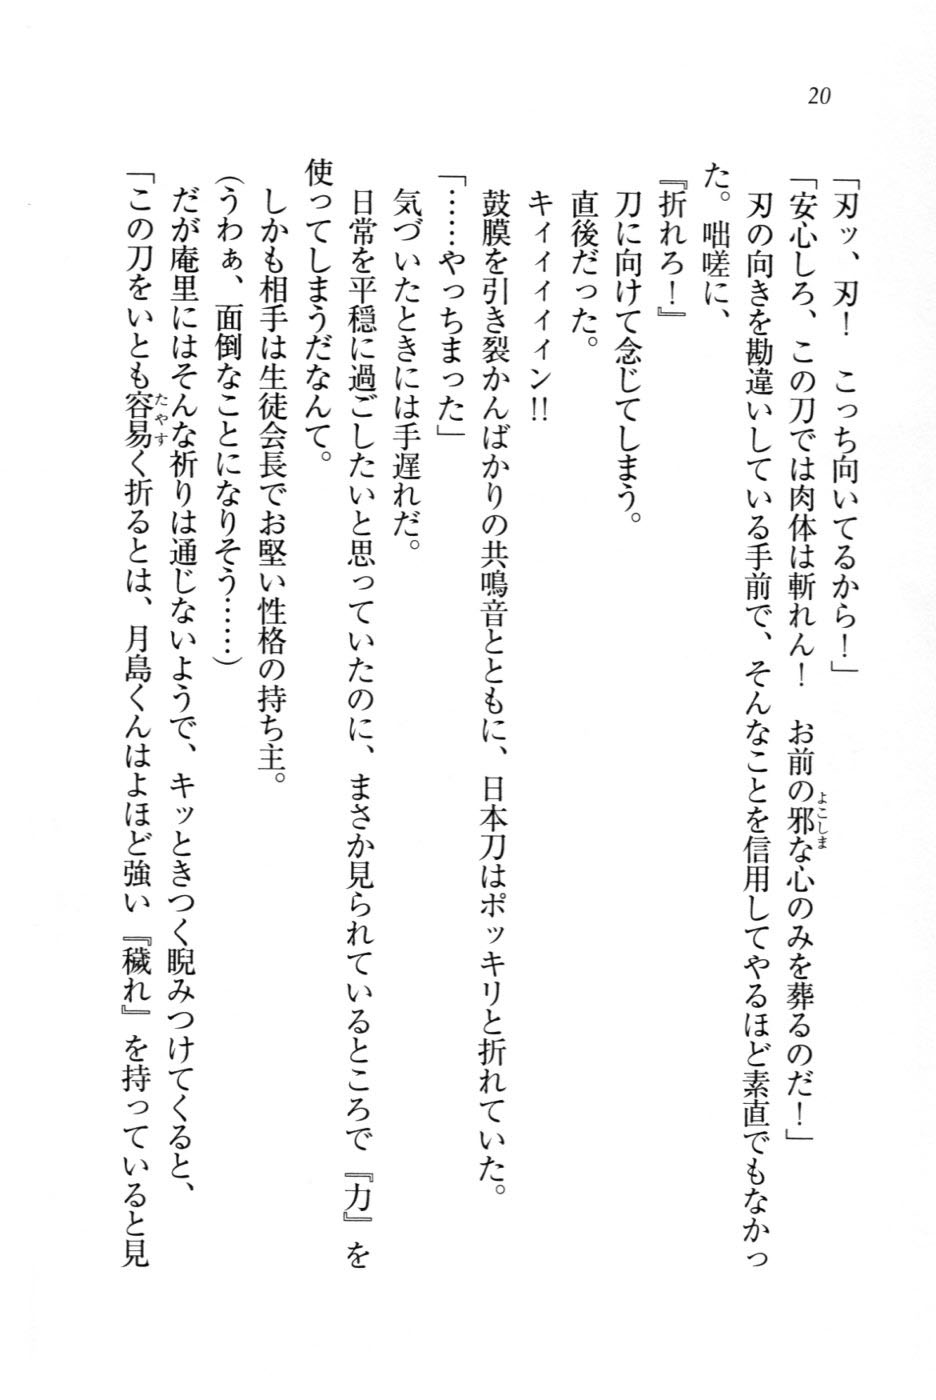 20
「刃ッ、刃！　こっち向いてるから！」
「安心しろ、この刀では肉体は斬れん！　お前の邪な心のみを葬るのだ！」
よこしま
　刃の向きを勘違いしている手前で、そんなことを信用してやるほど素直でもなかっ
た。咄嗟に、
『折れろ！』
　刀に向けて念じてしまう。
　直後だった。
　キィィィィィン!!
　鼓膜を引き裂かんばかりの共鳴音とともに、日本刀はポッキリと折れていた。
「……やっちまった」
　気づいたときには手遅れだ。
　日常を平穏に過ごしたいと思っていたのに、まさか見られているところで『力』を
使ってしまうだなんて。
　しかも相手は生徒会長でお堅い性格の持ち主。
（うわぁ、面倒なことになりそう……）
　だが庵里にはそんな祈りは通じないようで、キッときつく睨みつけてくると、
「この刀をいとも容易く折るとは、月島くんはよほど強い『穢れ』を持っていると見
たやす